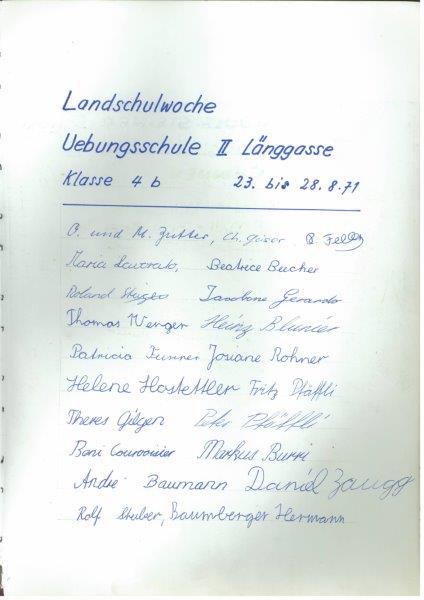 Landschulwoche
Uebungsschule II Länggasse
Klasse 4 b 23. bis 28.8.71
O. und M. Zutter, Ch.
Maria Beatrice Bucher
Roland Gerardo
Thomas Wenger Heinz Blunier
Patricia Furrer Josiane Rohner
Helene Hostettler Fritz Pfäffli
Theres Gilgen Peter Pfäffli
Courvoisier Markus Burri
André Baumann Daniel Zaugg
Rolf Steiber, Baumberger Hermann